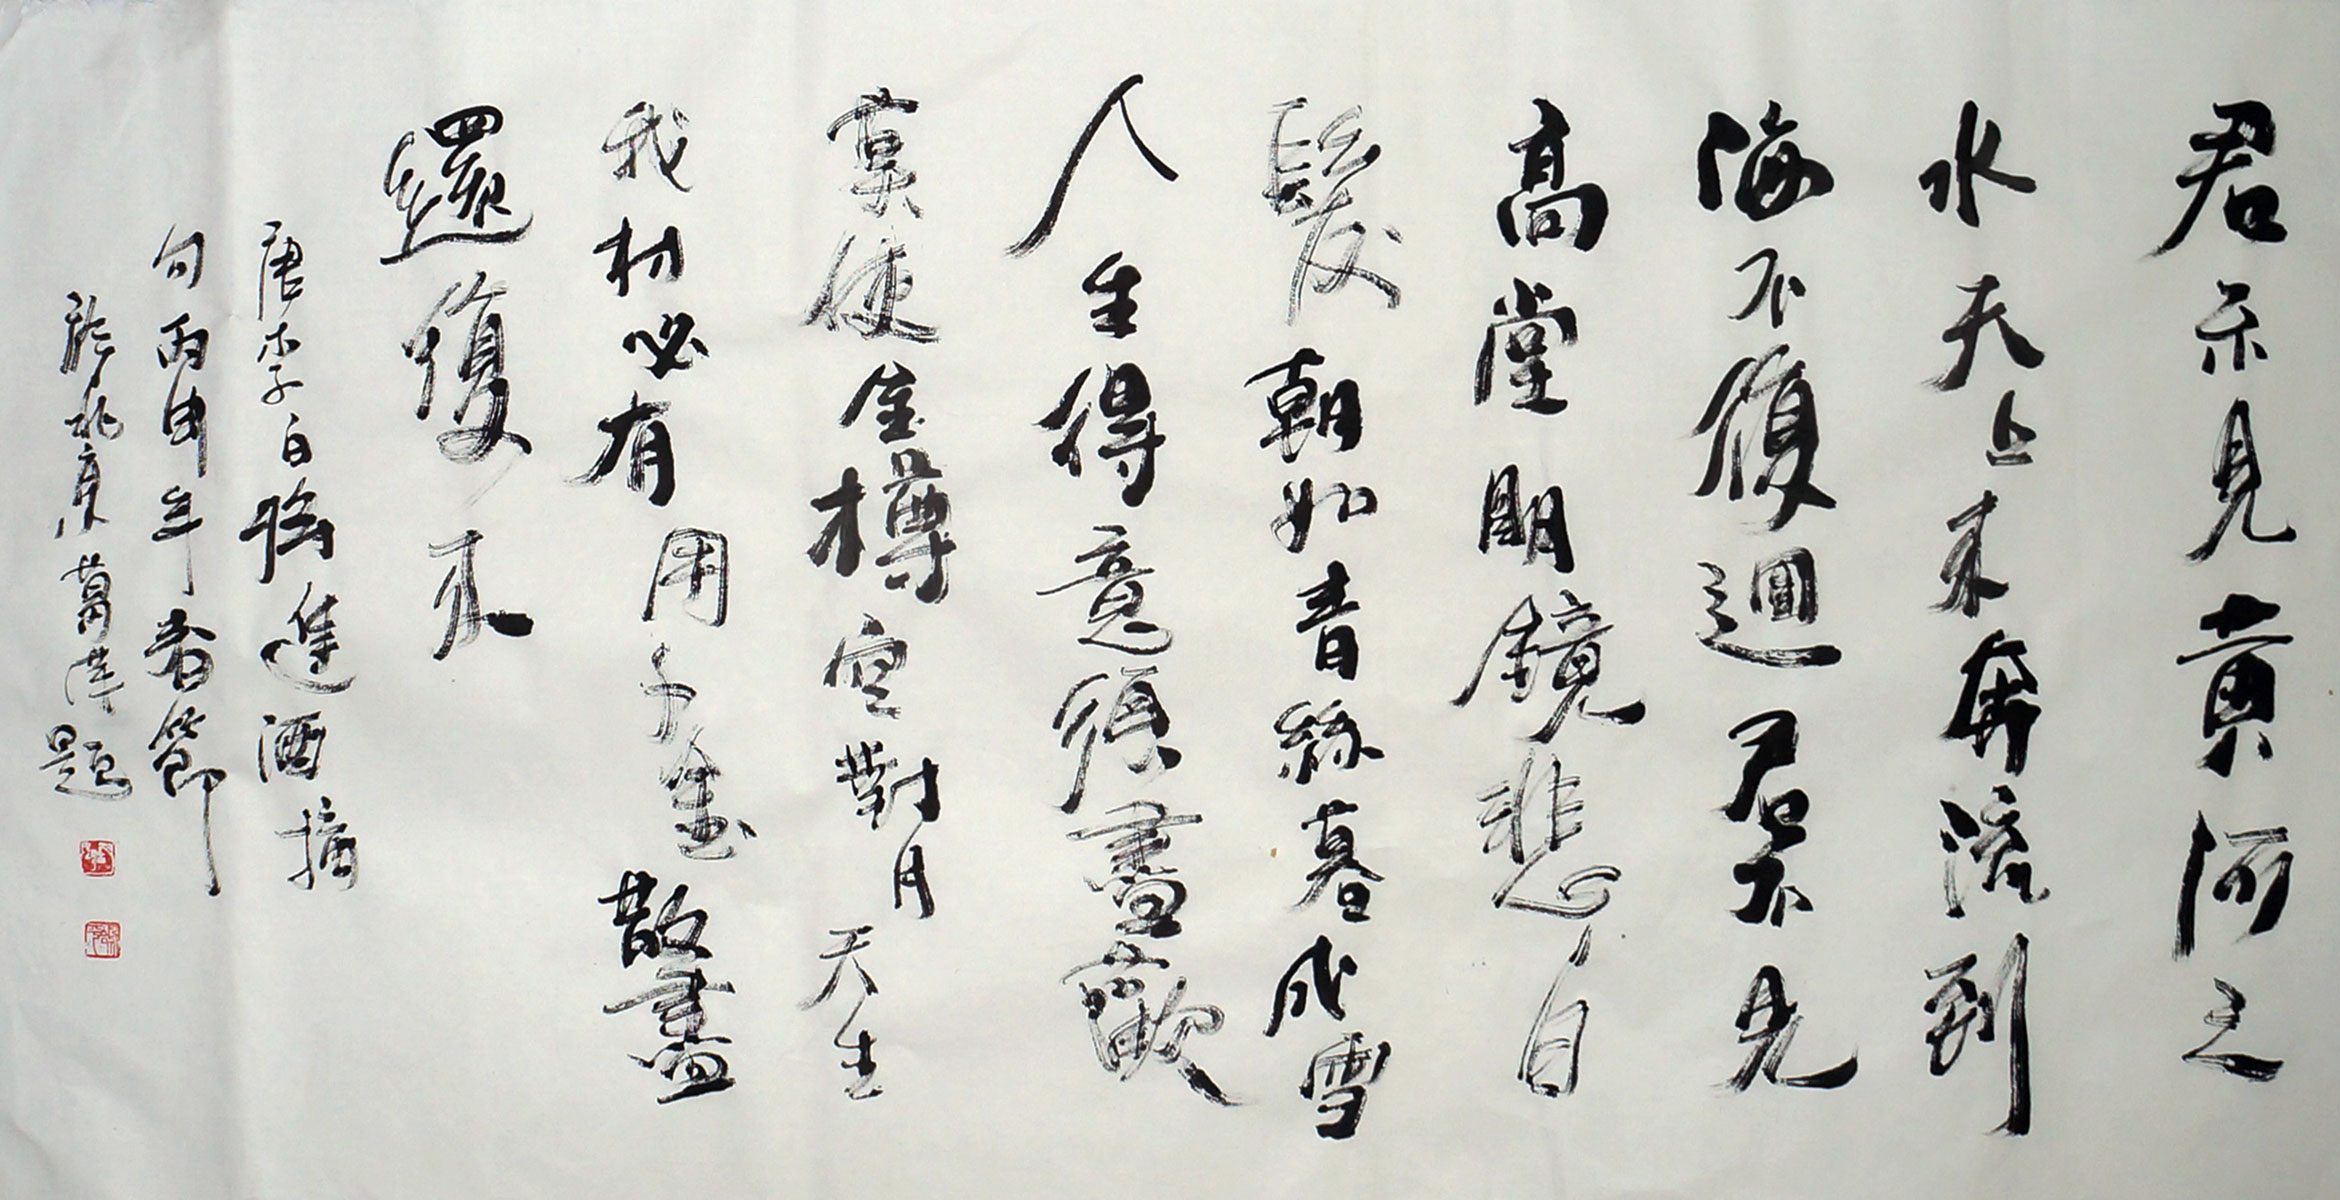 君不見黄河之
水天上来奔流到
海不復迴君不見
高堂明鏡悲白
髮朝如青絲暮成雪
人生得意須盡歡
莫使金樽空對月天生
我材必有用千金散盡
還復来
唐李白將進酒摘
句丙申年春節
於北京葛萍題